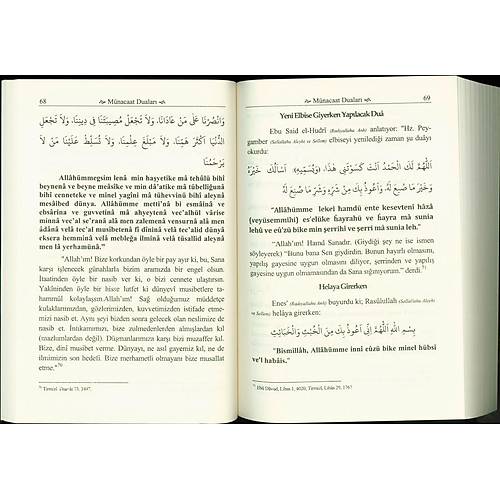 68 Münacaat Duaları
وَانْصُرْنَا عَلَى مَنْ عَادَانَا، وَلَا تَجْعَلْ مُصِيبَتَنَا فِي دِينِنَا، وَلَا تَجْعَلِ
الدُّنْيَا أَكْثَرَ هَمِّنَا، وَلَا مَبْلَغَ عِلْمِنَا، وَلَا تُسَلِّطْ عَلَيْنَا مَنْ لَا
يَرْحَمُنَا
Allâhümmegsim lenâ min haşyetike mâ tehûlü bihî
beynenâ ve beyne meâsike ve min dâ'atike mâ tübelliğunâ
bihî cenneteke ve minel yagîni mâ tühevvinü bihî aleynâ
mesâibed dünya. Allâhümme metti'nâ bi esmâinâ ve
ebsârina ve guvvetinâ mâ ahyeytenâ vec'alhül vârise
minnâ vec'al se'ranâ alâ men zalemenâ vensurnâ alâ men
âdânâ velâ tec'al musîbetenâ fî dîninâ velâ tec'alid dünyâ
eksera hemminâ velâ mebleğa ilminâ velâ tüsallid aleynâ
men lâ yerhamünâ."
"Allah'ım! Bize korkundan öyle bir pay ayır ki, bu, Sana
karşı işlenecek günahlarla bizim aramızda bir engel olsun.
İtaatinden öyle bir nasib ver ki, o bizi cennete ulaştırsın.
Yakîninden öyle bir hisse lutfet ki dünyevî musibetlere ta-
hammül kolaylaşsın.Allah'ım! Sağ olduğumuz müddetçe
kulaklarımızdan, gözlerimizden, kuvvetimizden istifade etme-
mizi nasib et. Aynı şeyi bizden sonra gelecek olan neslimize de
nasib et. İntikamımızı, bize zulmedenlerden almışlardan kıl
(mazlumlardan değil). Düşmanlarımıza karşı bizi muzaffer kıl.
Bize, dinî musibet verme. Dünyayı, ne asıl gayemiz kıl, ne de
ilmimizin son hedefi. Bize merhametli olmayanı bize musallat
etme."70
70 Tirmizî, Daavât 73, 3497.
Münacaat Duaları 69
Yeni Elbise Giyerken Yapılacak Duâ
Ebu Said el-Hudrî (Radıyallahu Anh) anlatıyor: "Hz. Pey-
gamber (Sallallahu Aleyhi ve Sellem) elbiseyi yenilediği zaman şu duâyı
okurdu:
اَللّٰهُمَّ لَكَ الْحَمْدُ أَنْتَ كَسَوْتَنِي هٰذَا (وَيُسَمِّيهِ) أَسْأَلُكَ خَيْرَهُ
وَخَيْرَ مَا صُنِعَ لَهُ، وَأَعُوذُ بِكَ مِنْ شَرِّهِ وَشَرِّ مَا صُنِعَ لَهُ
"Allâhümme lekel hamdü ente kesevtenî hâzâ
(veyüsemmihî) es'elüke ḥayrahü ve ḥayra mâ sunia
lehû ve eûzü bike min şerrihî ve şerri mâ sunia leh."
"Allah'ım! Hamd Sanadır. (Giydiği şey ne ise ismen
söyleyerek) "Bunu bana Sen giydirdin. Bunun hayırlı olmasını,
yapılış gayesine uygun olmasını diliyor, şerrinden ve yapılış
gayesine uygun olmamasından da Sana sığınıyorum." derdi.71
Helaya Girerken
Enes' (Radıyallahu Anh) buyurdu ki; Rasûlüllah (Sallallahu Aleyhi
ve Sellem) helâya girerken:
بِسْمِ اللهِ اَللّٰهُمَّ إِنِّي أَعُوذُ بِكَ مِنَ الْخُبُثِ وَالْخَبَائِثِ
"Bismillâh, Allâhümme innî eûzü bike minel hübsi
ve'l habâis."
71 Ebû Dâvud, Libas 1, 4020; Tirmizî, Libâs 29, 1767